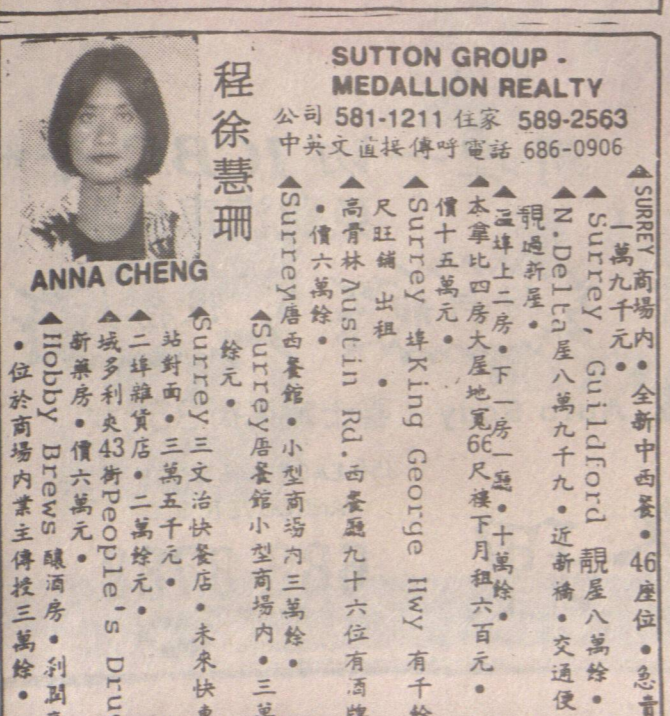 SUTTON GROUP -
MEDALLION REALTY
公司 581-1211 住家 589-2563
中英文直接傳呼電話 686-0906
程徐慧珊
ANNA CHENG
▲SURREY商場內•全新中西餐•46座位•急賣
一萬九千元•
▲Surrey, Guildford 靚屋八萬餘•
▲N.Delta屋八萬九千九•近新橋•交通便
靚過新屋•
▲溫埠上二房•下一房一廳•十萬餘•
▲本拿比四房大屋地寬66尺樓下月租六百元•
價十五萬元•
▲Surrey 埠King George Hwy 有千餘
尺旺鋪 出租 •
▲高貴林Austin Rd.西餐廳九十六位有酒牌
•價六萬餘•
▲Surrey唐西餐館•小型商場內三萬餘•
▲Surrey唐餐館小型商場內•三萬
餘元•
▲Surrey三文治快餐店•未來快車
站對面•三萬五千元•
▲二埠雜貨店•二萬餘元•
▲域多利夾43街People's Drug
新藥房•價六萬元•
▲Hobby Brews 釀酒房•利潤
•位於商場內業主傳授三萬餘•